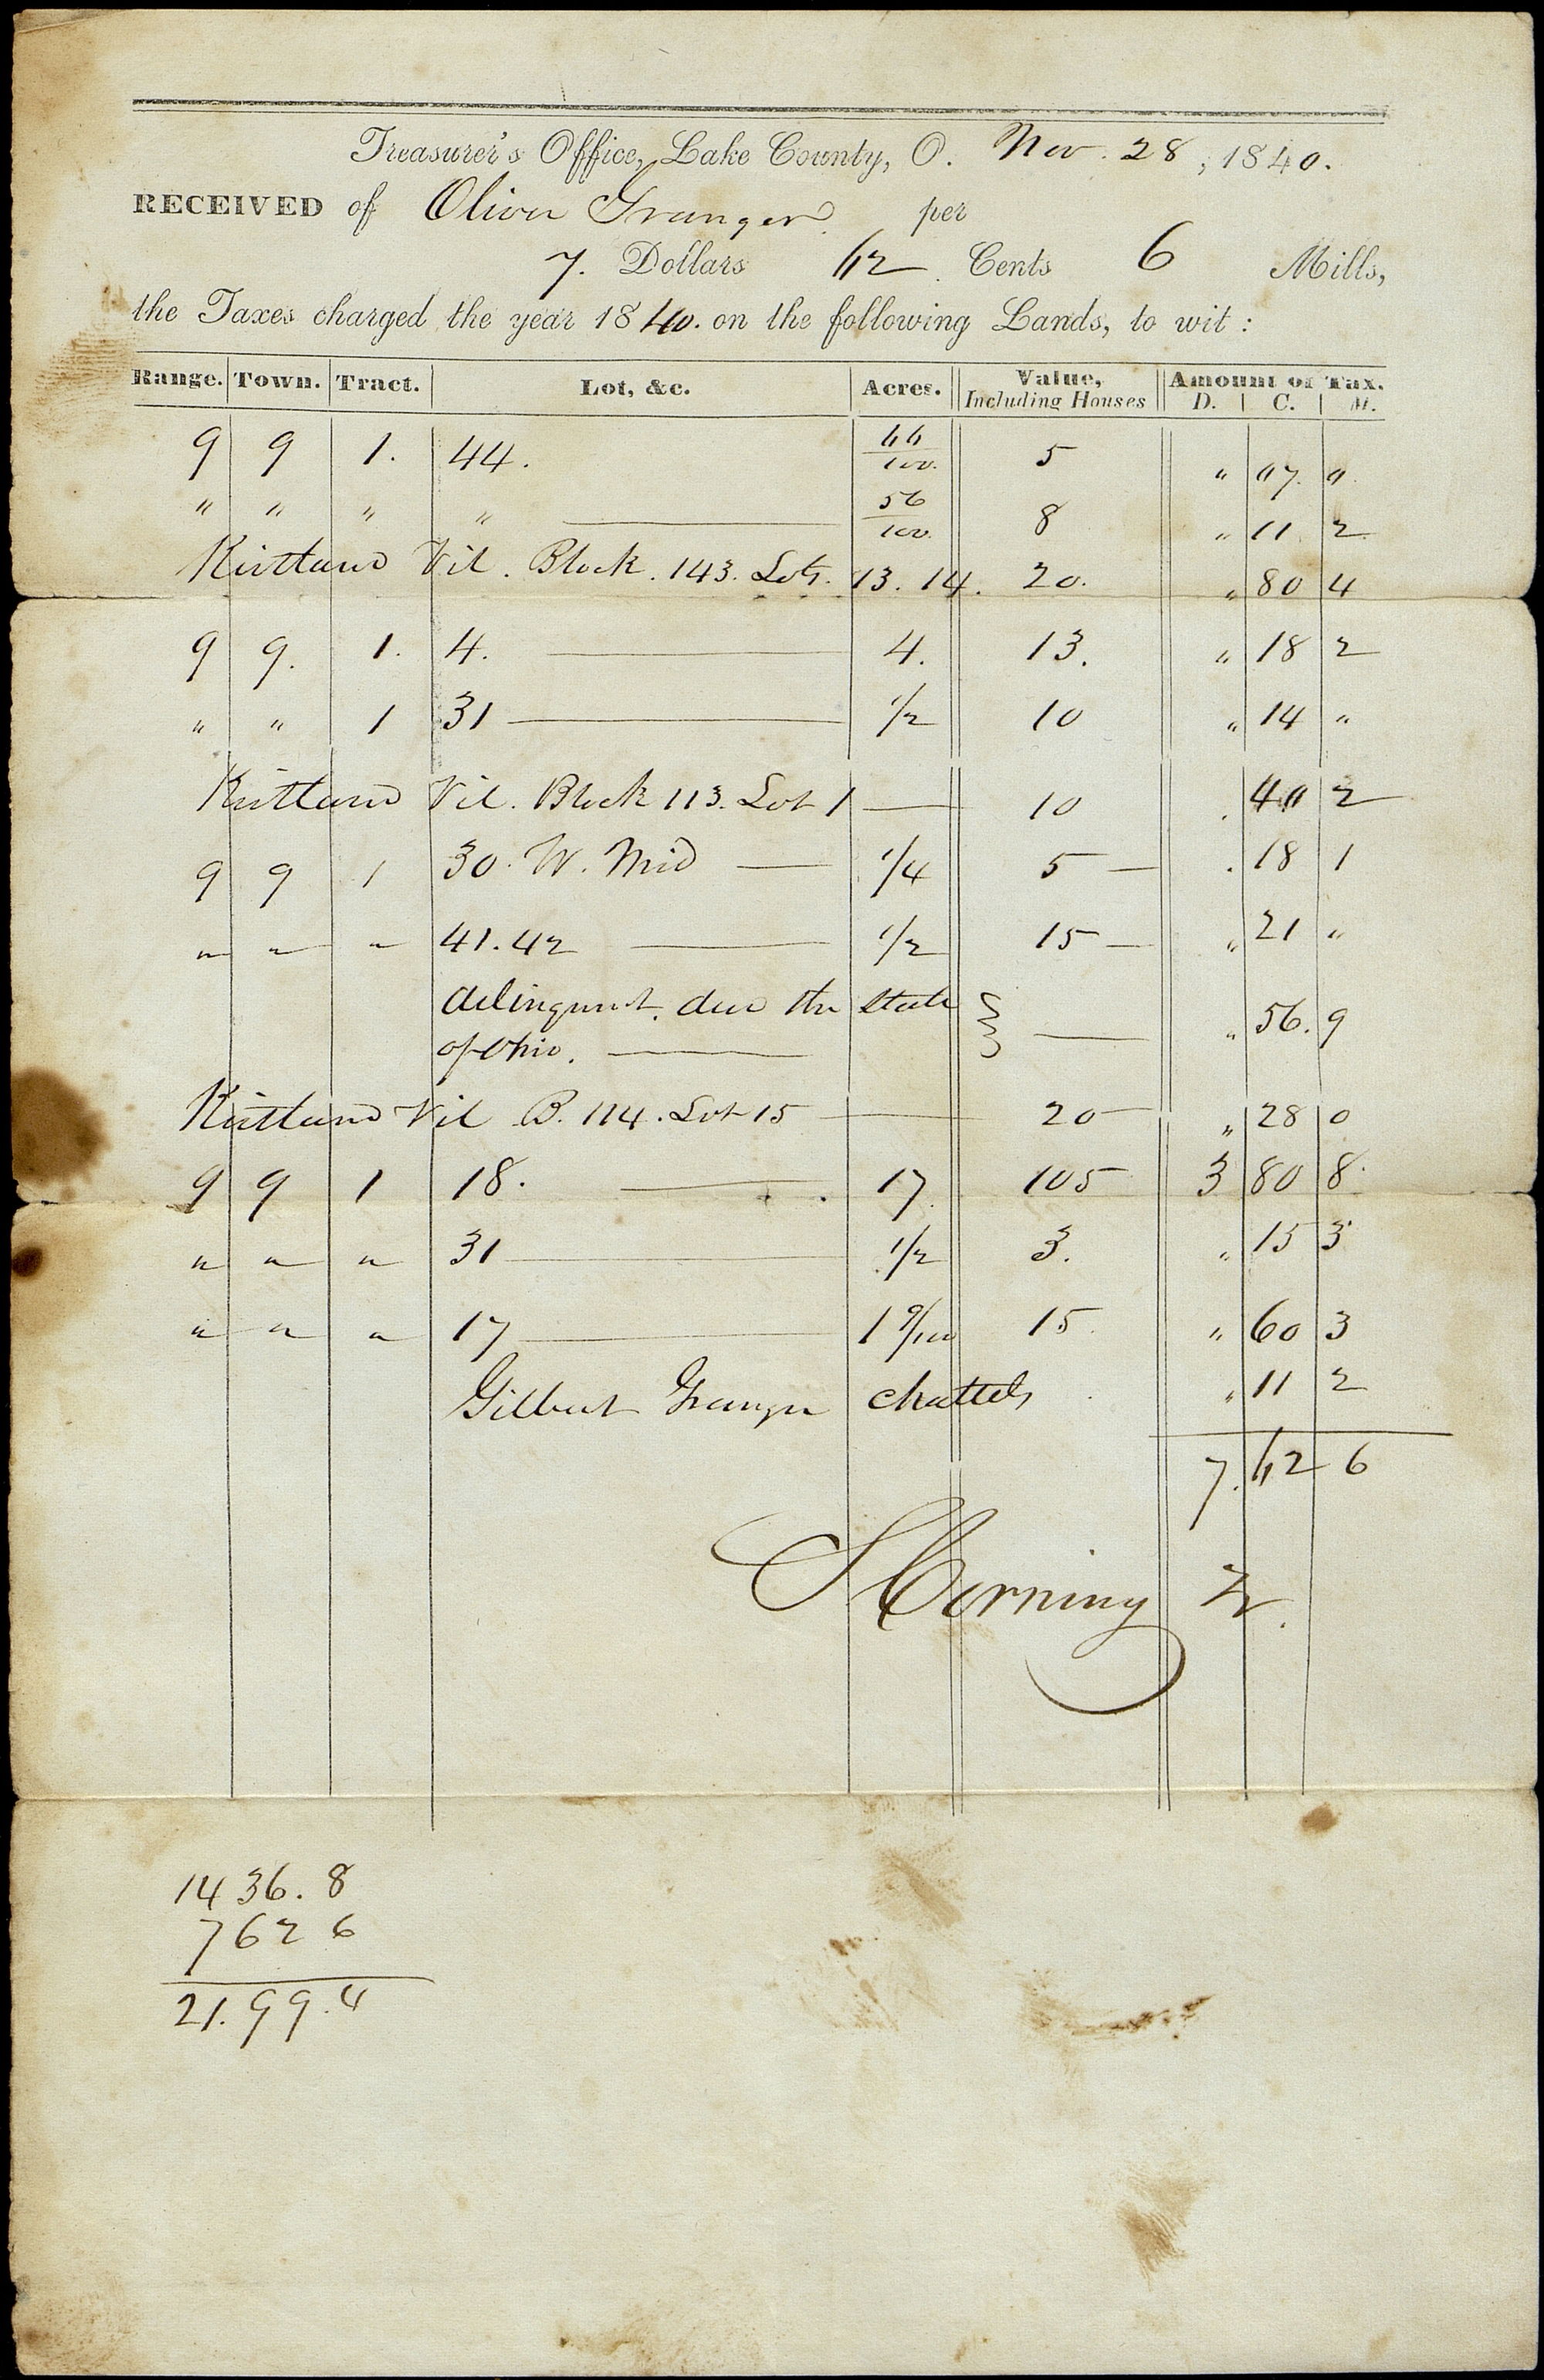 Treasurer's Office, Lake County, O. Nov. 28, 1840.
RECEIVED of Oliver Granger per
7. Dollars 62 Cents 6 Mills,
the Taxes charged the year 1840. on the following Lands, to wit:
Range. Town. Tract. Lot, &c. Acres. Value, Including Houses Amount of Tax. D. C. M.
9 9 1. 44. 66/100. 5 " 07. 0
" " " " 56/100. 8 " 11 2
Kirtland Vil. Block. 143. Lots. 13. 14. 20. " 80 4
9 9. 1. 4. 4. 13. " 18 2
" " 1 31 1/2 10 " 14 "
Kirtland Vil. Block 113. Lot 1 10 . 40 2
9 9 1 30. W. Mid 1/4 5 . 18 1
" " " 41. 42 1/2 15 " 21 "
delinquent due the State
of Ohio. " 56. 9
Kirtland Vil B. 114. Lot 15 20 " 28 0
9 9 1 18. 17. 105 3 80 8
" " " 31 1/2 3. " 15 3
" " " 17 1 9/100 15. " 60 3
Gilbert Granger chattels " 11 2
7. 62 6
S Corning Tr.
14 36. 8
7 62 6
21. 99. 4